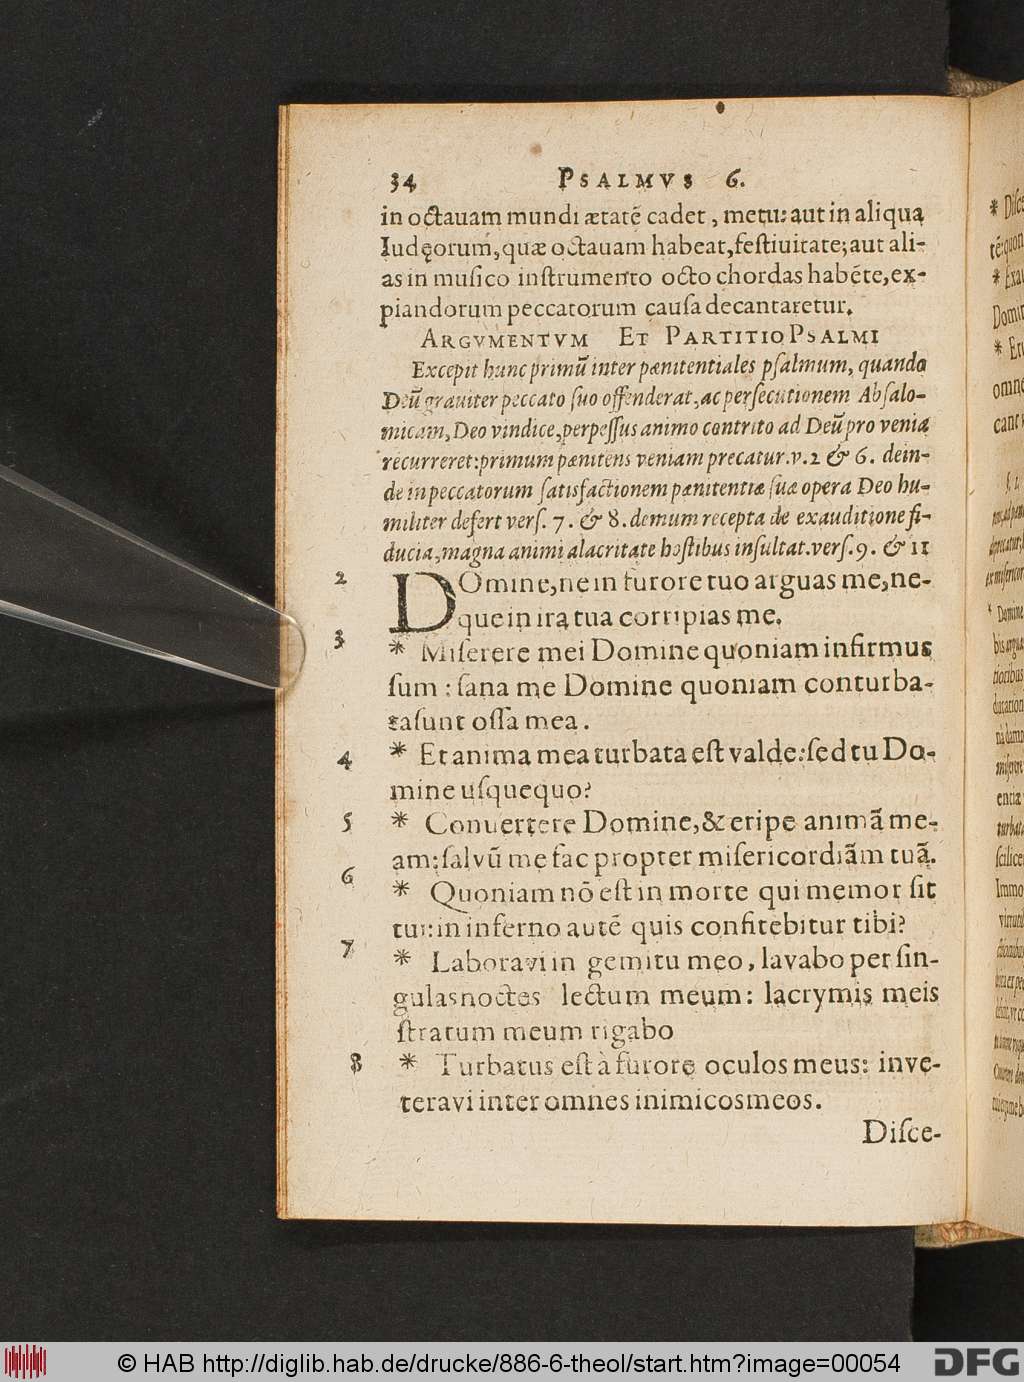 34 PSALMVS 6.
in octauam mundi ætatē cadet, metu: aut in aliqua
Iudęorum, quæ octauam habeat, feſtiuitate; aut ali-
as in muſico inſtrumento octo chordas habēte, ex-
piandorum peccatorum cauſa decantaretur.
ARGVMENTVM ET PARTITIO PSALMI
Excepit hunc primū inter pænitentiales pſalmum, quando
Deū grauiter peccato ſuo offenderat, ac perſecutionem Abſalo-
micam, Deo vindice, perpeſſus animo contrito ad Deū pro venia
recurreret: primum pænitens veniam precatur. v. 2 & 6. dein-
de in peccatorum ſatisfactionem pænitentiæ ſuæ opera Deo hu-
militer defert verſ. 7. & 8. demum recepta de exauditione fi-
ducia, magna animi alacritate hoſtibus inſultat. verſ. 9. & 11
2 DOmine, ne in furore tuo arguas me, ne-
que in ira tua corripias me.
3 * Miſerere mei Domine quoniam infirmus
ſum: ſana me Domine quoniam conturba-
ta ſunt oſſa mea.
4 * Et anima mea turbata eſt valde: ſed tu Do-
mine uſquequo?
5 * Conuertere Domine, & eripe animā me-
am: ſalvū me fac propter miſericordiā̄m tuā.
6 * Quoniam nō eſt in morte qui memor ſit
tui: in inferno autē quis confitebitur tibi?
7 * Laboravi in gemitu meo, lavabo per ſin-
gulas noctes lectum meum: lacrymis meis
ſtratum meum rigabo
8 * Turbatus eſt à furore oculos meus: inve-
teravi inter omnes inimicos meos.
Diſce-
© HAB http://diglib.hab.de/drucke/886-6-theol/start.htm?image=00054 DFG